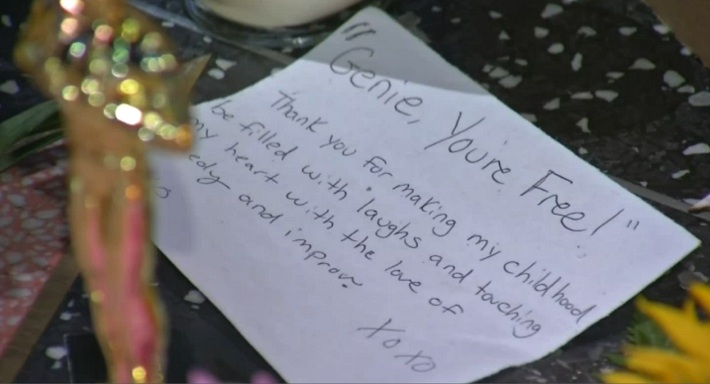 "Genie, You're Free!"
Thank you for making my childhood
be filled with laughs and touching
my heart with the love of
edy and improv
XOXO